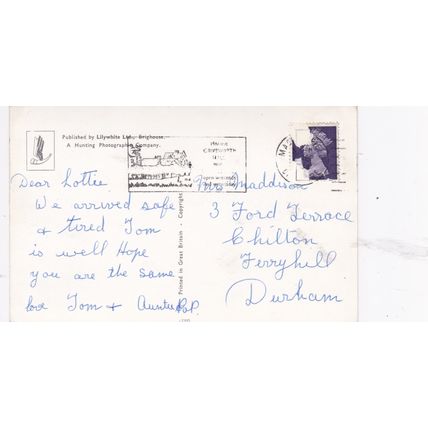 Published by Lilywhite Ltd., Brighouse.
A Hunting Photographic Company.
Dear Lottie
We arrived safe
& tired Tom
is well Hope
you are the same
love Tom & Aunty
Printed in Great Britain - Copyright
Mrs Maddison
3 Ford Terrace
Chilton
Ferryhill
Durham